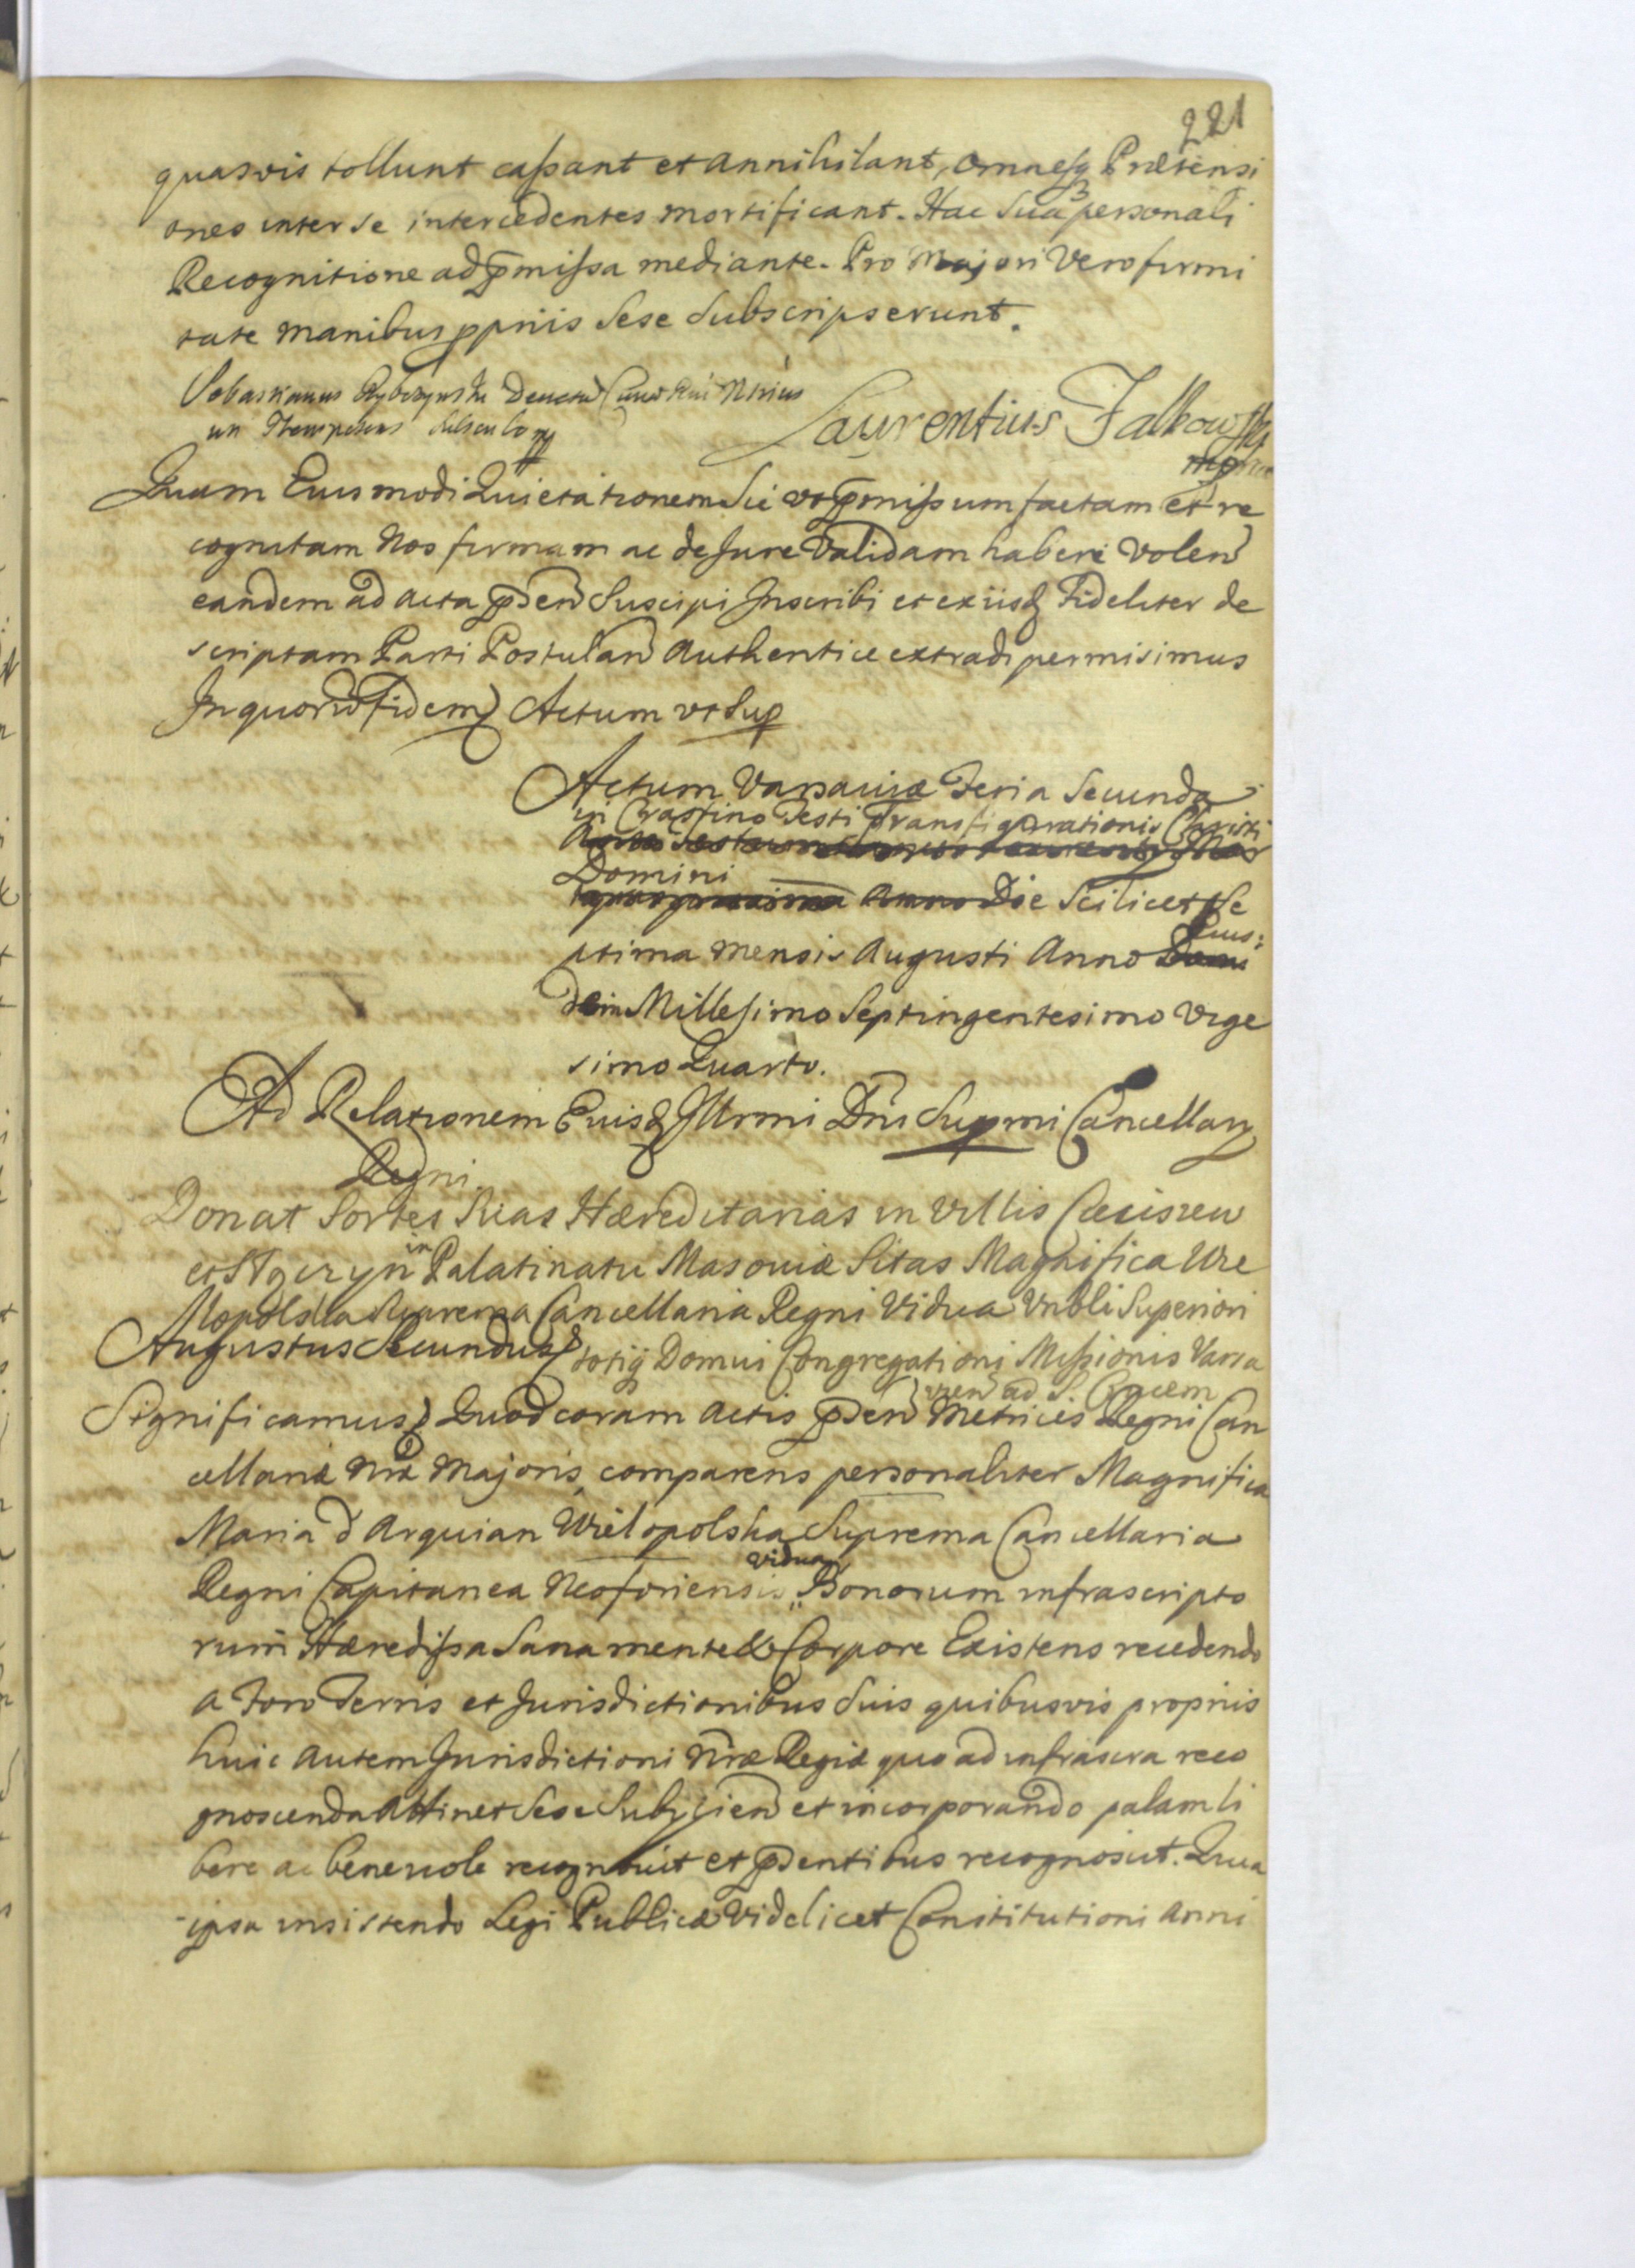 221
quasvis tollunt cassant et annihilant, omnesq Prætensi
ones inter se intercedentes mortificant. Hac sua personali
Recognitione ad p̄missa mediante. Pro Majori Vero firmi
tate manibus ppriis sese subscripserunt.
Sebastianus
Laurentius Falkowski
mp
Quam Eiusmodi Quietationem sic vt p̄missum factam et re
cognitam Nos firmam ac de Jure Validam haberi Volen
eandem ad acta p̄den suscipi Inscribi et ex iisd Fideliter de
scriptam Parti Postulan Authentice extradi permisimus
In quor̄ Fidem Actum vt sup
Actum Varsaviæ Feria Secunda
in Crastino Festi Transfigurationis Christi
Domini
Anno Die Scilicet Se
ptima mensis Augusti Anno Eius:
dem Millesimo Septingentesimo Vige
simo Quarto.
Ad Relationem Eiusd Illrmi Dni Supmi Cancellarÿ
Regni
Donat Sortes Suas Hæreditarias in Villis
et in Palatinatu Masoviæ Sitas Magnifica Wie
lopolska Suprema Cancellaria Regni Vidua Vnbli Superiori
Augustus Secundus totiq Domui Congregationi Missionis Varsa
vien ad S. Crucem
Significamus Quod coram Actis p̄den Metrices Regni Can
cellariæ Nræ Majoris, comparens personaliter Magnifica
Maria d Arquian Wielopolska Suprema Cancellaria
vidua
Regni Capitanea Neoforiensis,, Bonorum infrascripto
rum Hæredissa Sana mente & Corpore Existens recedendo
a Foro Terris et Jurisdictionibus Suis quibusvis propriis
huic autem Jurisdictioni Nræ Regiæ quo ad infrascra reco
gnoscenda Attinet Sese Subijcien et incorporando palam li
bere ac benevole recognovit et p̄dentibus recognoscit. Quia
ipsa insistendo Legi Publicæ Videlicet Constitutioni Anni